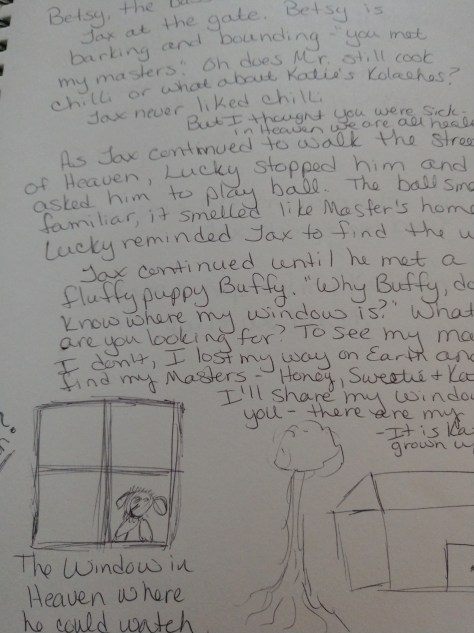 Betsy, the
Jax at the gate. Betsy is
barking and bounding - "you met
my masters." Oh does Mr. still cook
chilli or what about Katie's Kolaches?
Jax never liked chilli.
But I thought you were sick.
in Heaven we are all
As Jax continued to walk the
of Heaven, Lucky stopped him and
asked him to play ball. The ball
familiar, it smelled like Master's
Lucky reminded Jax to find the
Jax continued until he met a
fluffy puppy Buffy. "Why Buffy,
Know where my window is?" What
are you looking for? To see my
I don't, I lost my way on Earth and
find my Masters - Honey, Sweetie +
I'll share my
you - there are my
- It is
grown
The Window in
Heaven where
he could watch